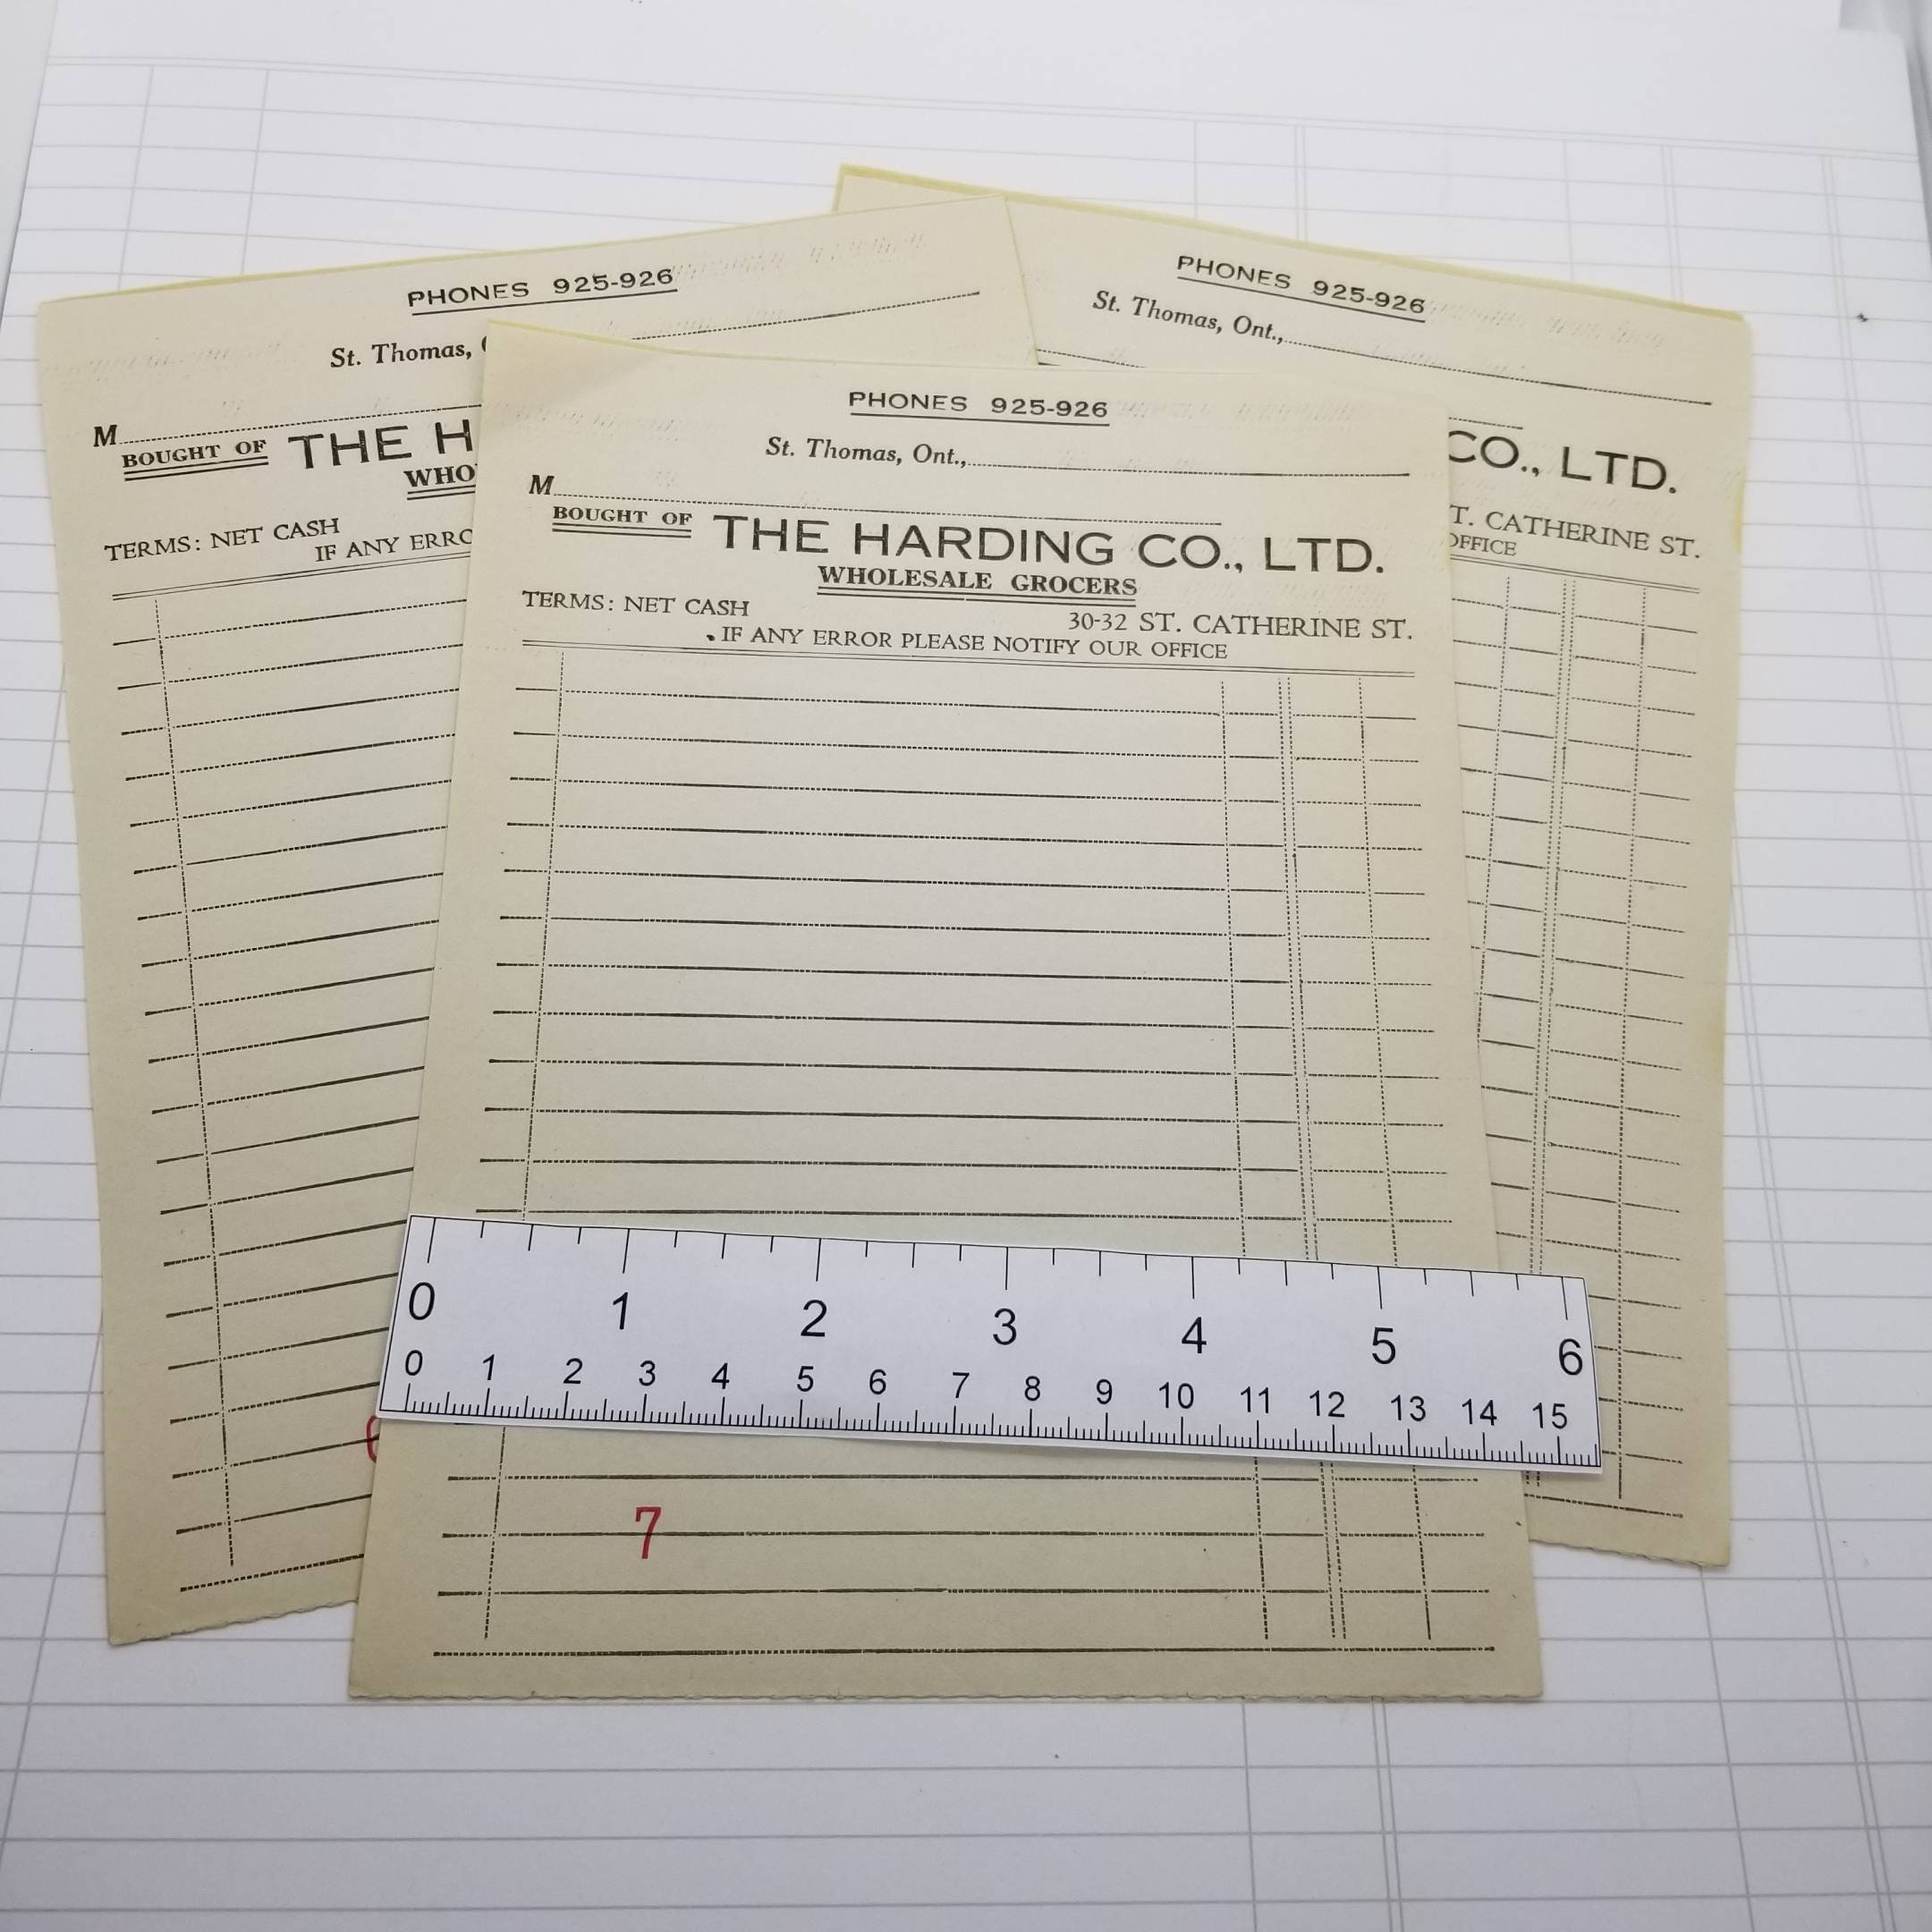 PHONES 925-926
St. Thomas,
M
BOUGHT OF THE H
WHO
TERMS: NET CASH
IF ANY ERRO
PHONES 925-926
St. Thomas, Ont.,
CO., LTD.
T. CATHERINE ST.
OFFICE
PHONES 925-926
St. Thomas, Ont.,
M
BOUGHT OF THE HARDING CO., LTD.
WHOLESALE GROCERS
TERMS: NET CASH 30-32 ST. CATHERINE ST.
IF ANY ERROR PLEASE NOTIFY OUR OFFICE
0 1 2 3 4 5 6
0 1 2 3 4 5 6 7 8 9 10 11 12 13 14 15
7